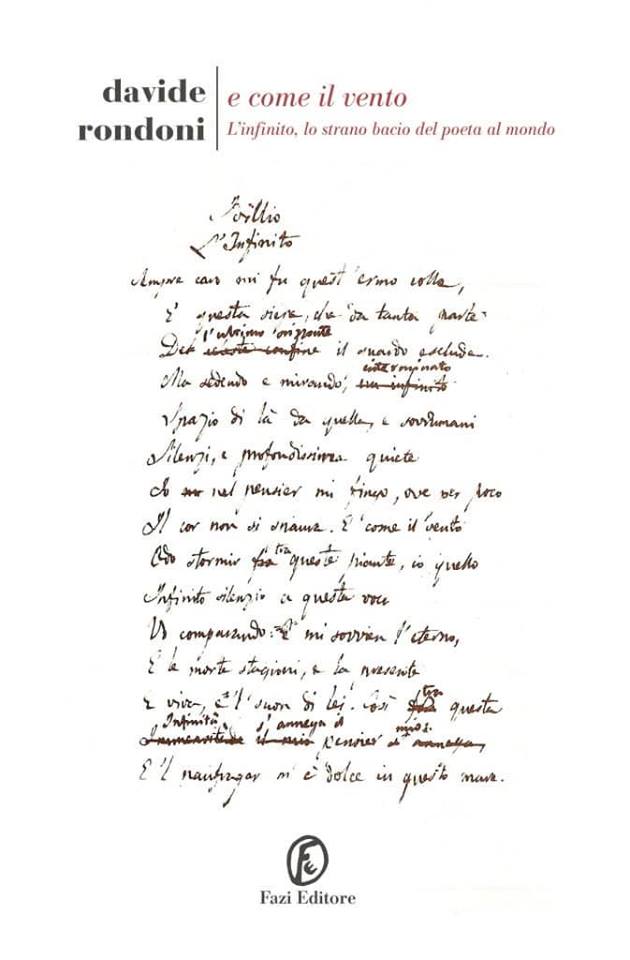 davide
rondoni
e come il vento
L'infinito, lo strano bacio del poeta al mondo
Idillio
L'Infinito
Sempre caro mi fu quest'ermo colle,
E questa siepe, che da tanta parte
l'ultimo orizzonte
De celeste confine il guardo esclude.
interminato
Ma sedendo e mirando, un infinito
Spazio di là da quella, e sovrumani
Silenzi, e profondissima quiete
Io nel pensier mi fingo, ove per poco
Il cor non si spaura. E come il vento
tra
Odo stormir fra queste piante, io quello
Infinito silenzio a questa voce
Vo comparando: E mi sovvien l'eterno,
E le morte stagioni, e la presente
E viva, e 'l suon di lei. Così
tra
fra questa
Infinità s'annega il mio:
Immensitade il mio pensier s'annega,
E 'l naufragar m'è dolce in questo mare.
Fazi Editore